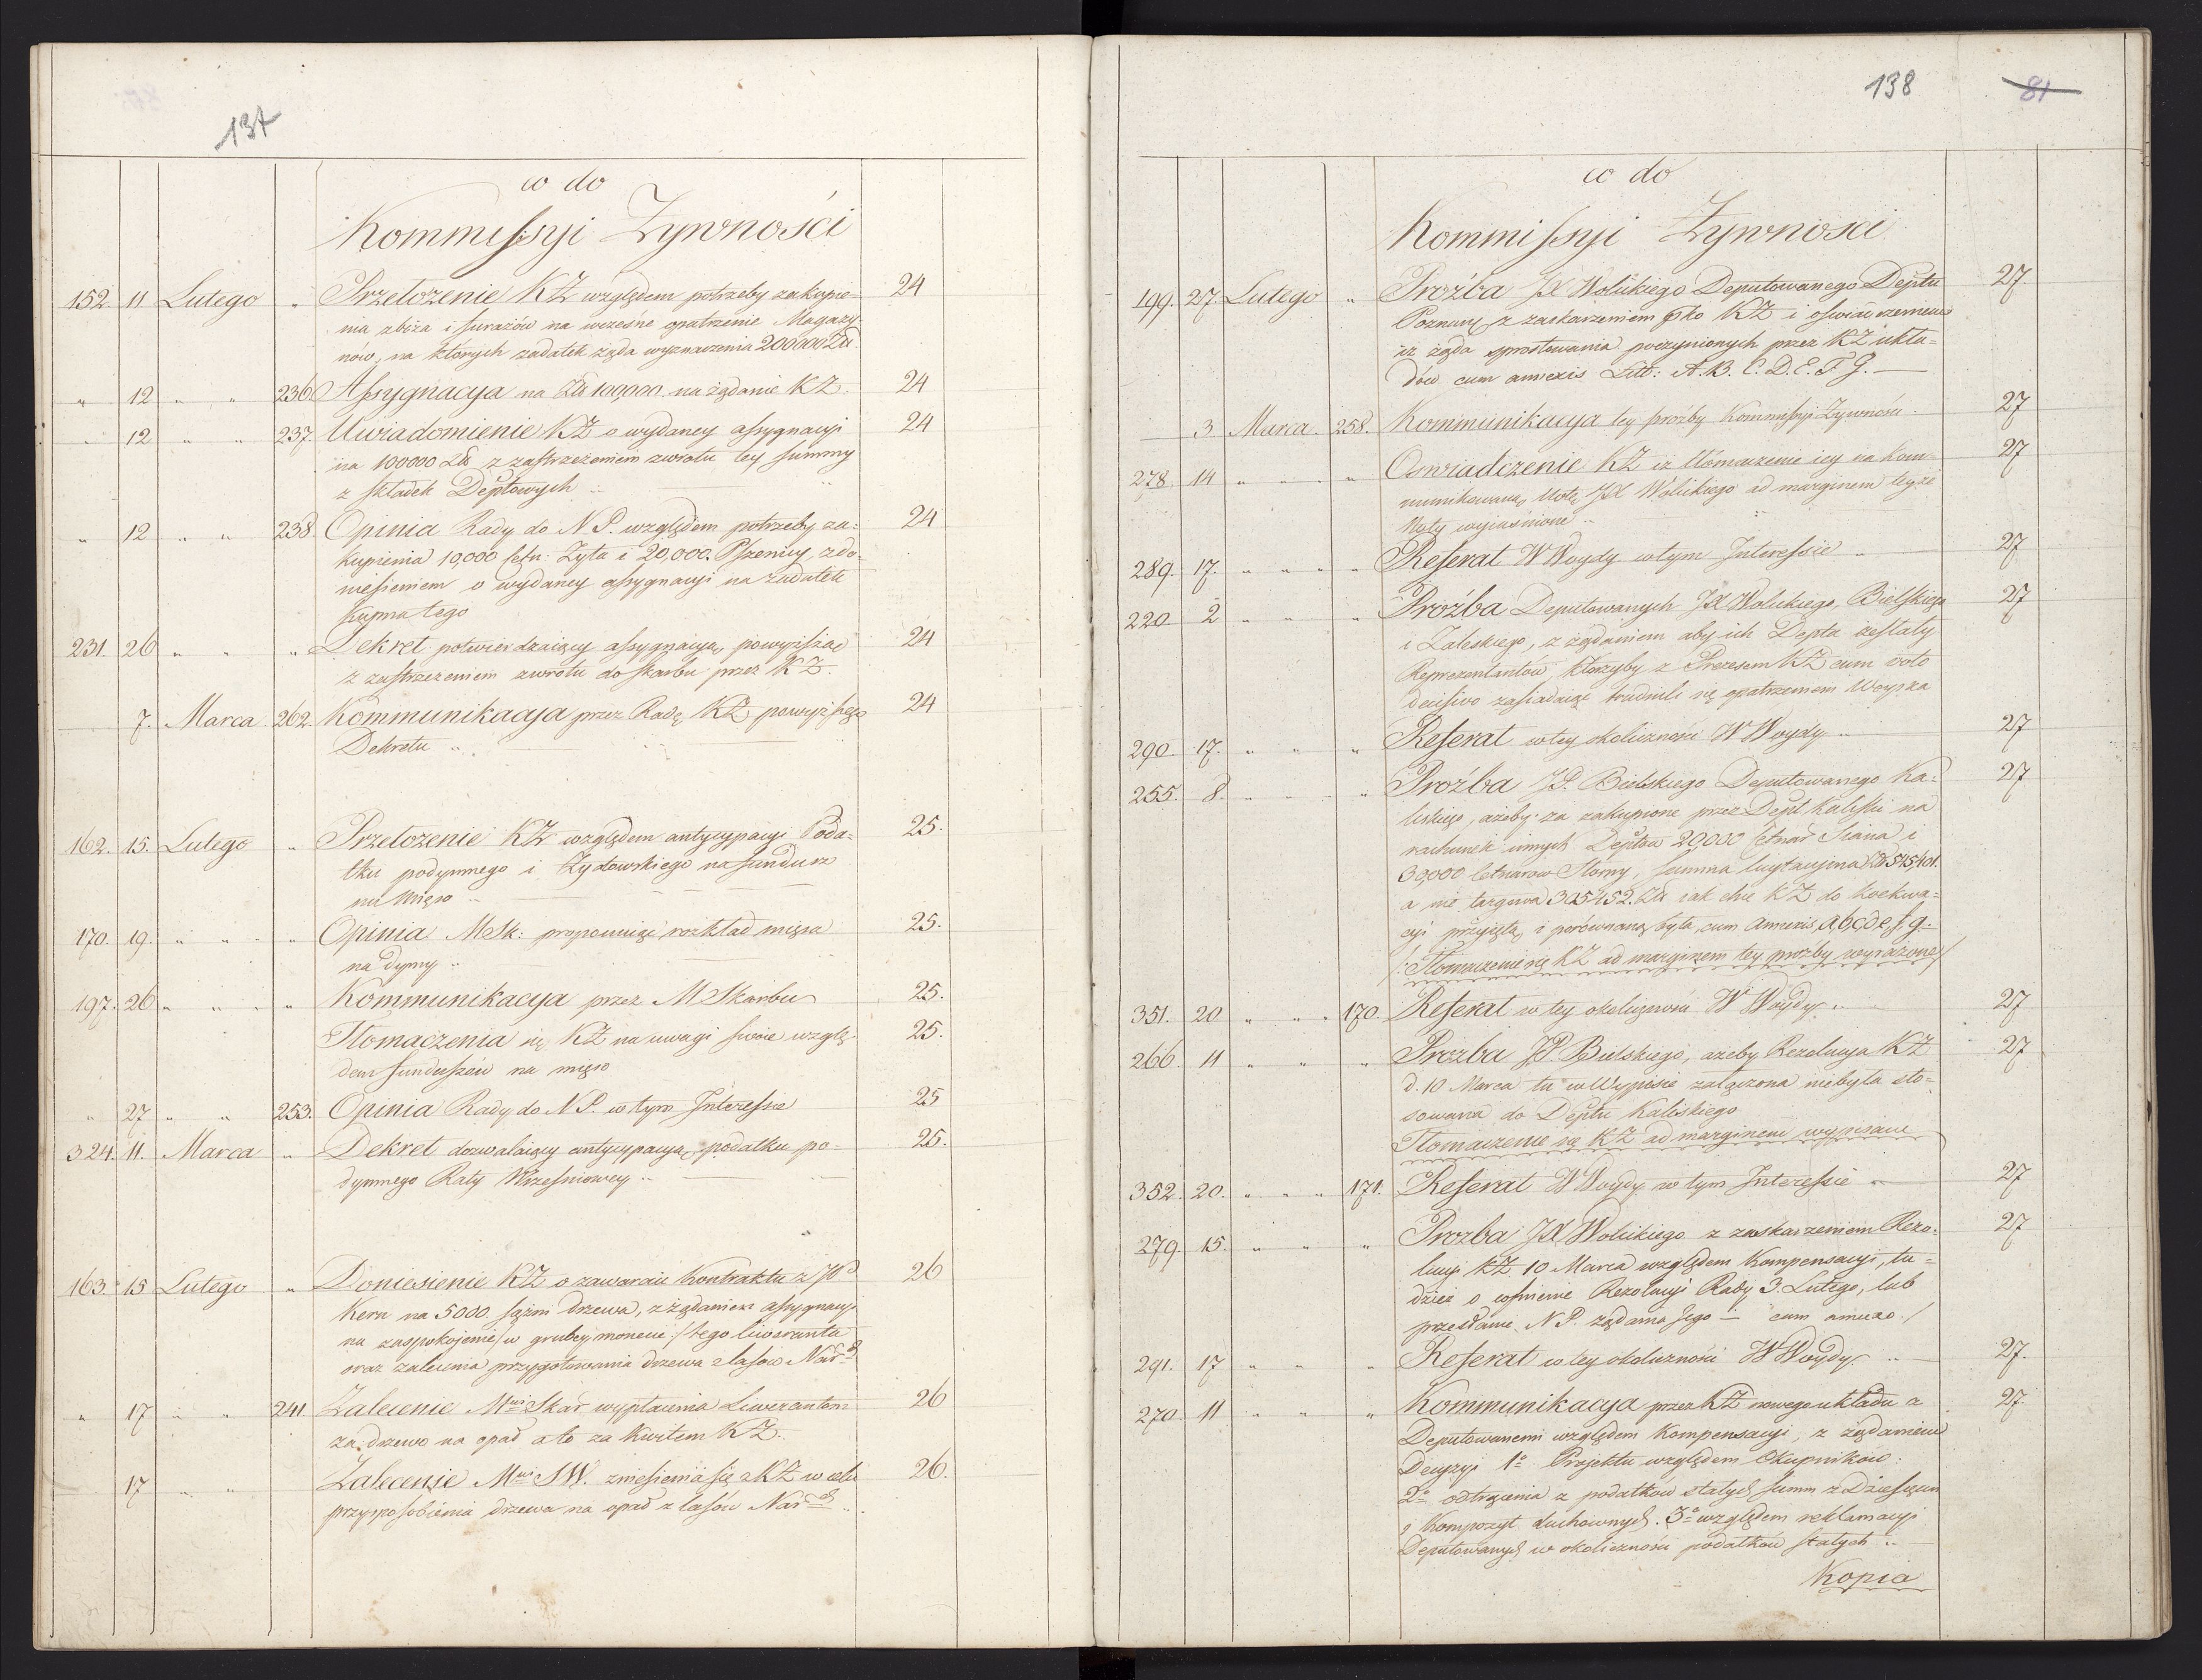 137
co do
Kommissyi Zywnosći
152. 11 Lutego " Przełożenie KŻ względem potrzeby zakupie= 24
nia zboża i furażów na wczesne opatrzenie Magazy-
nów, na których zadatek żąda wyznaczenia 200000 Zł.
" 12 " " 236 Assygnacya na Zł 100,000. na żądanie KZ. 24
" 12 " " 237. Uwiadomienie KŻ o wydaney assygnacyi 24
na 100000 Zł z zastrzeżeniem zwrotu tey summy
z składek Deptowych
" 12 " " 238 Opinia Rady do N P. względem potrzeby za= 24
kupienia 10,000 Cetn: Zyta i 20,000. Pszenicy, z do-
niesieniem o wydaney assygnacyi na zadatek
Kupna tego
231. 26 " " " Dekret potwierdzaiący assygnacyą powyższą 24
z zastrzeżeniem zwrotu do skarbu przez KZ.
7. Marca 262. Kommunikacya przez Radę KŻ powyższego 24
Dekretu
162. 15. Lutego " Przełożenie KŻ względem antycypacyi Poda= 25.
tku podymnego i Zydowskiego na fundusz
na Mięso
170. 19. " " " Opinia MSk: proponuiąc rozkład mięsa 25.
na dymy
197. 26 " " " Kommunikacya przez M Skarbu 25.
Tłomaczenia się KŻ na uwagi swoie wzglę- 25.
dem funduszów na mięso
" 27 " " 253. Opinia Rady do N P. w tym Interessie 25
324. 11. Marca " Dekret dozwalaiący antycypacyą podatku po= 25.
dymnego Raty Wrzesniowey
163. 15 Lutego " Doniesienie KŻ o zawarciu Kontraktu z JP 26
Kern na 5000. sążni drzewa, z żądaniem assygnacyi
na zaspokojenie /w grubey monecie:/ tego liweranta
oraz zalecenia przygotowania drzewa z lasów Nar
" 17 " " 241 Zalecenie M Skar wypłacenia Liwerantom 26
za drzewo na opał a to za kwitem KZ.
17 " " Zalecenie M SW. zniesienia się z KŻ w celu 26.
przysposobienia drzewa na opał z lasów Nar
138 81
co do
Kommissyi Zywnosci
199. 27 Lutego " Prozba JX Wolickiego Deputowanego Deptu 27.
Poznań z zaskarzeniem pko KŻ i oswiadczeniem
iż żąda sprostowania poczynionych przez KŻ ukła=
dów cum annexis Litt: A. B. C. D. E. F. G.
3 Marca. 258. Kommunikacya tey prozby Kommissyi Zywnosci. 27
278. 14 " " " Oswiadczenie KŻ iż tłómaczenie iey na kom= 27
munikowaną Notę JX Wolickiego ad marginem teyże
Noty wyiasnione
289. 17. " " " Referat W Woydy w tym Interessie 27
220 2 " " " Prozba Deputowanych JX Wolickiego, Bielskiego 27
i Zaleskiego, z żądaniem aby ich Depta zesłały
Reprezentantów, którzyby z Prezesem KŻ cum voto
decisivo zasiadaiąc trudnili się opatrzeniem Woyska
290. 17. " " " Referat w tey okolicznosci W Woydy 27
255. 8. " " " Prozba JP. Bielskiego Deputowanego Ka= 27
liskiego, ażeby za zakupione przez Dept Kaliski na
rachunek innych Deptów 20,000 Cetnar Siana i
30,000 cetnarów Słomy, summa licytacyjna Zł 545,401.
a nie targowa 305452. Zł iak chce KŻ do koekwa=
cyi przyiętą i porównaną była, cum Annexis, a, b, c, d, e, f, g.
/: Tłomaczenie się KŻ ad marginem tey prozby wyrażone/
351. 20 " " " 170. Referat w tey okolicznosci W Woydy 27
266. 11 " " " Prozba JP Bielskiego, azeby Rezolucya KŻ 27
d. 10 Marca tu w Wypisie załączona niebyła sto=
sowana do Deptu Kaliskiego
Tłomaczenie się KŻ ad marginem wypisane
352. 20. " " " 171. Referat W Woydy w tym Interessie 27
279. 15. " " " Prozba JX Wolickiego z zaskarzeniem Rezo= 27
lucyi KŻ 10 Marca względem Kompensacyi, tu=
dzież o cofnienie Rezolucyi Rady 3. Lutego, lub
przesłanie N P. żądania Jego — cum annexo /
291. 17 " " " Referat w tey okolicznosci W Woydy 27.
270. 11 " " " Kommunikacya przez KŻ nowego układu z 27.
Deputowanemi względem Kompensacyi, z żądaniem
Decyzyi 1º Projektu względem Okupników:
2º odtrącenia z podatków stałych summ z Dziesięcin
i Kompozyt duchownych. 3º względem reklamacyi
Deputowanych w okolicznosci podatków stałych
Kopia